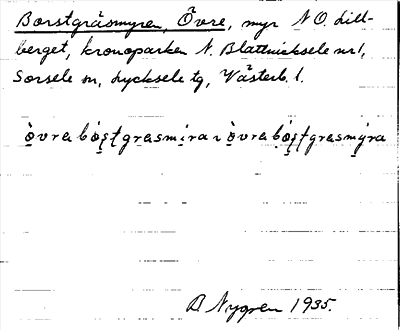 Borstgräsmyren, Övre, myr N O. Lill-
berget, kronoparken N. Blattnicksele nr 1,
Sorsele sn, Lycksele tg, Västerb. l.
òvra bó̜ş̜tgrasmira ı òvra bó̜ştgrasmýra
B Nygren 1935.